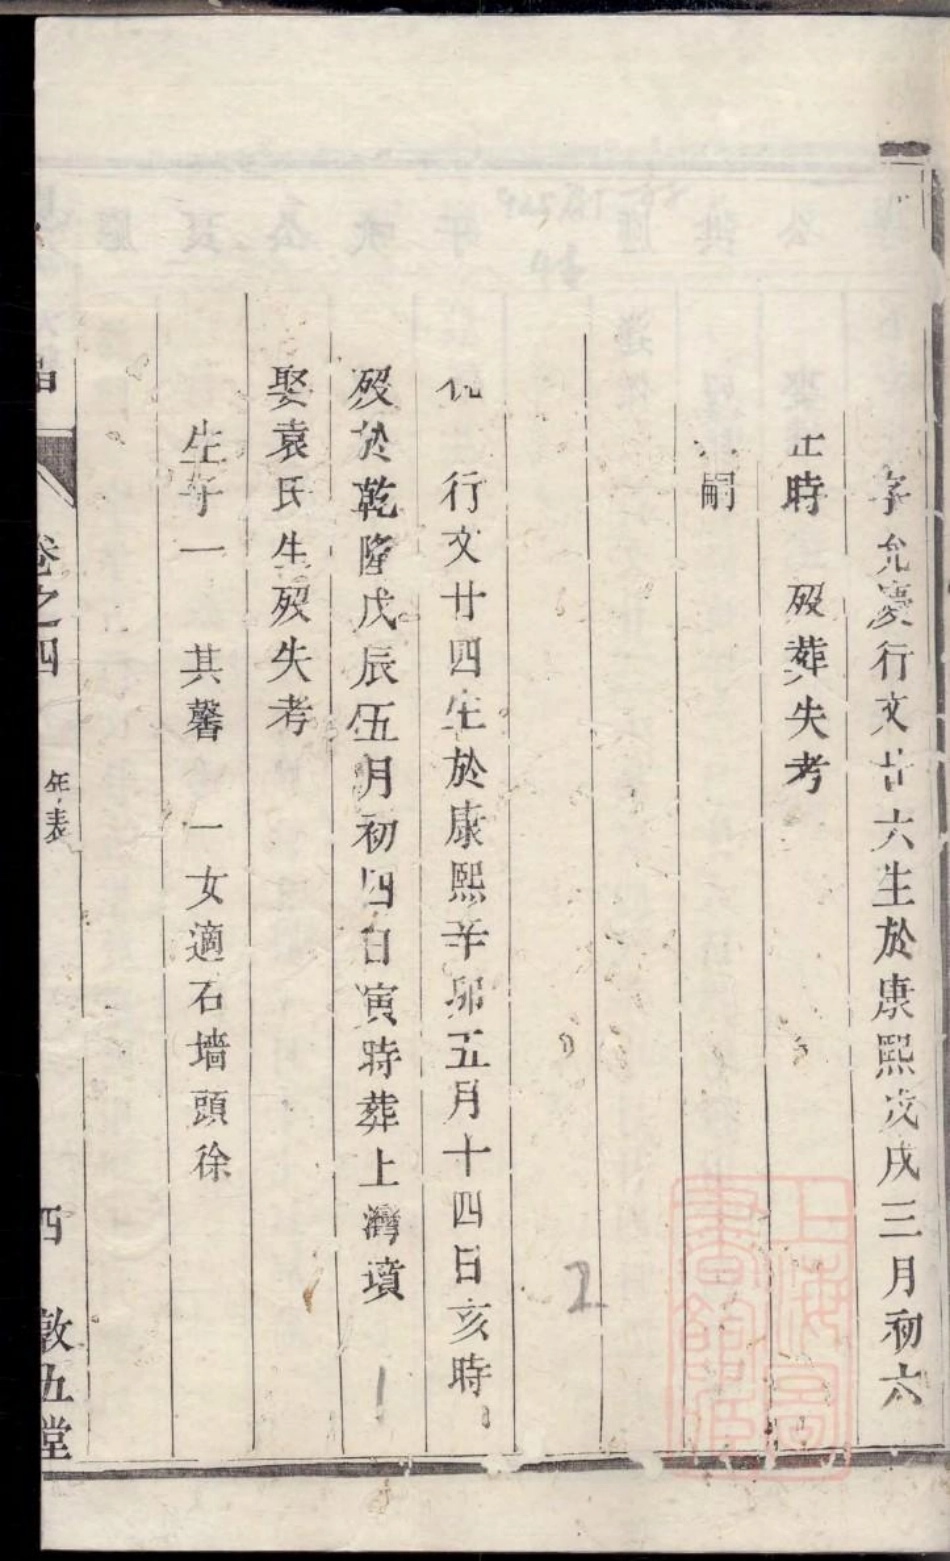 字允慶行文廿六生於康熙戊戌三月初六
時 歿葬失考
嗣
行文廿四生於康熙辛卯五月十四日亥時
歿於乾隆戊辰伍月初四日寅時葬上灣墳
娶袁氏生歿失考
生子一 其馨 一女適石墻頭徐
卷之四 年表 四 敦五堂
上海圖書館藏
2
1